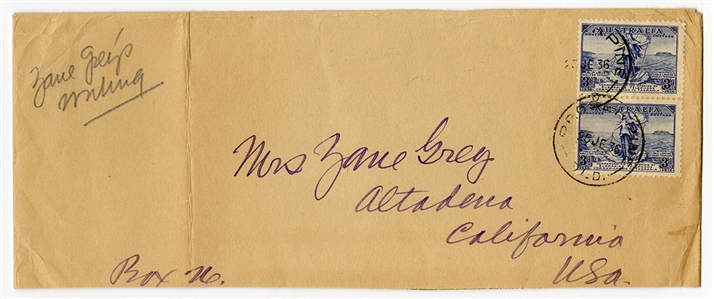 Zane Grey's
writing
AUSTRALIA
PINE
JE 36
3D
AUSTRALIA
JE 36
3D
Mrs Zane Grey
Altadena
California
Box N.
USA.